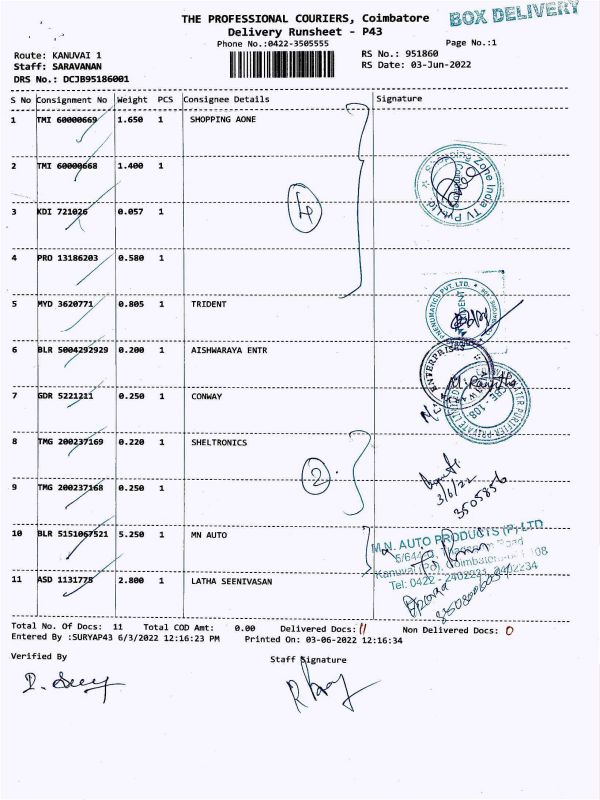 THE PROFESSIONAL COURIERS, Coimbatore
BOX DELIVERY
Delivery Runsheet - P43
Phone No.:0422-3505555
Page No.:1
Route: KANUVAI 1
RS No.: 951860
Staff: SARAVANAN
RS Date: 03-Jun-2022
DRS No.: DCJB95186001
S No Consignment No Weight PCS Consignee Details Signature
1 TMI 60000669 1.650 1 SHOPPING AONE
2 TMI 60000668 1.400 1
3 KDI 721026 0.057 1
4
4 PRO 13186203 0.580 1
5 MYD 3620771 0.805 1 TRIDENT
6 BLR 5004292929 0.200 1 AISHWARAYA ENTR
7 GDR 5221211 0.250 1 CONWAY
8 TMG 200237169 0.220 1 SHELTRONICS
2
9 TMG 200237168 0.250 1
3/6/22
3505856
10 BLR 5151067521 5.250 1 MN AUTO
M.N. AUTO PRODUCTS (P) LTD
11 ASD 1131775 2.800 1 LATHA SEENIVASAN
Total No. of Docs: 11 Total COD Amt: 0.00 Delivered Docs: 11 Non Delivered Docs: 0
Entered By :SURYAP43 6/3/2022 12:16:23 PM Printed On: 03-06-2022 12:16:34
Verified By
Staff Signature